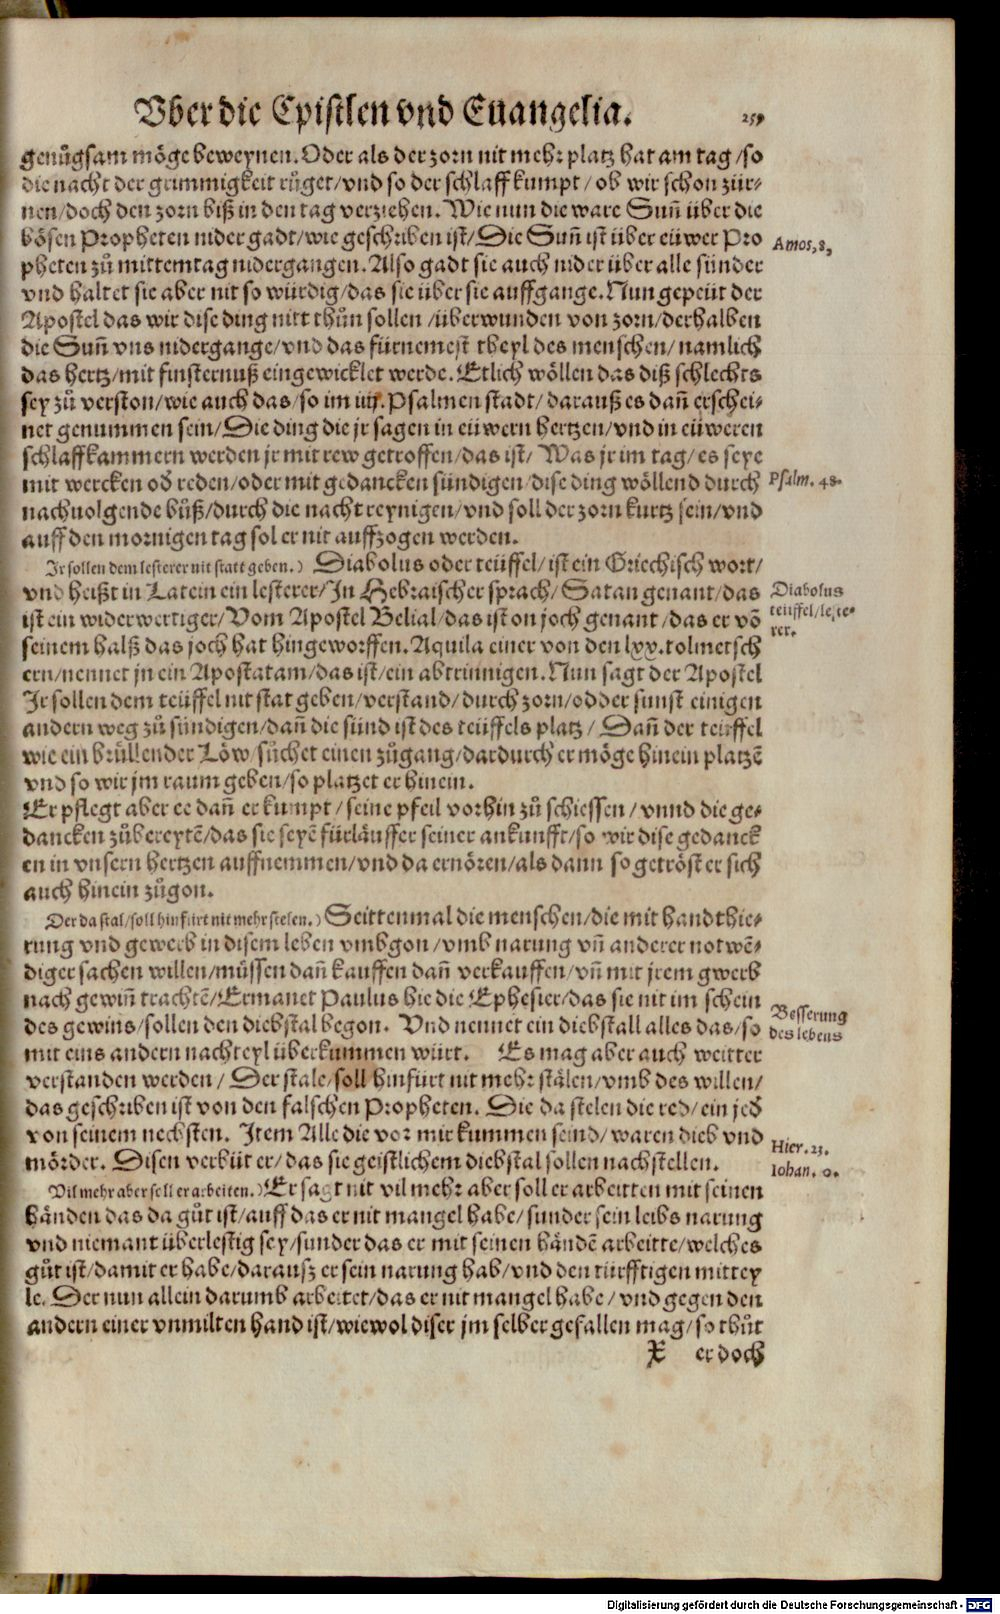 Vber die Epistlen vnd Euangelia.
genůgsam möge beweynen. Oder als der zorn nit mehr platz hat am tag/so
die nacht der grimmigkeit růget/vnd so der schlaff kumpt/ob wir schon zür-
nen/doch den zorn biß in den tag verziehen. Wie nun die ware Suñ über die
bösen Propheten nider gadt/wie geschriben ist/Die Suñ ist über eüwer Pro
Amos,8,
pheten zů mittemtag nidergangen. Also gadt sie auch nider über alle sünder
vnd haltet sie aber nit so würdig/das sie über sie auffgange. Nun gepeüt der
Apostel das wir dise ding nitt thůn sollen/überwunden von zorn/derhalben
die Suñ vns nidergange/vnd das fürnemest theyl des menschen/namlich
das hertz/mit finsternuß eingewicklet werde. Etlich wöllen das diß schlechts
sey zů verston/wie auch das/so im iiij. Psalmen stadt/darauß es dañ erschei-
net genummen sein/Die ding die jr sagen in eüwern hertzen/vnd in eüweren
schlaffkammern werden jr mit rew getroffen/das ist/Was jr im tag/es seye
mit wercken od reden/oder mit gedancken sündigen/dise ding wöllend durch
Psalm. 48.
nachuolgende bůß/durch die nacht reynigen/vnd soll der zorn kurtz sein/vnd
auff den mornigen tag sol er nit auffzogen werden.
Jr sollen dem lesterer nit statt geben.) Diabolus oder teüffel/ist ein Griechisch wort/
vnd heißt in Latein ein lesterer/Jn Hebraischer sprach/Satan genant/das
Diabolus
ist ein widerwertiger/Vom Apostel Belial/das ist on joch genant/das er võ
teüffel/leste-
seinem halß das joch hat hingeworffen. Aquila einer von den lxx. tolmetsch
rer.
ern/nennet jn ein Apostatam/das ist/ein abtrinnigen. Nun sagt der Apostel
Jr sollen dem teüffel nit stat geben/verstand/durch zorn/odder sunst einigen
andern weg zů sündigen/dañ die sünd ist des teüffels platz/Dañ der teüffel
wie ein brüllender Löw/sůchet einen zůgang/dardurch er möge hinein platzẽ
vnd so wir jm raum geben/so platzet er hinein.
Er pflegt aber ee dañ er kumpt/seine pfeil vorhin zů schiessen/vnnd die ge-
dancken zůbereytẽ/das sie seyẽ fürläuffer seiner ankunfft/so wir dise gedanck
en in vnsern hertzen auffnemmen/vnd da ernören/als dann so getröst er sich
auch hinein zůgon.
Der da stal/soll hinfürt nit mehr stelen.) Seittenmal die menschen/die mit handthie-
rung vnd gewerb in disem leben vmbgon/vmb narung vñ anderer notwẽ-
diger sachen willen/müssen dañ kauffen dañ verkauffen/vñ mit jrem gwerb
nach gewiñ trachtẽ/Ermanet Paulus hie die Ephesier/das sie nit im schein
Besserung
des gewins/sollen den diebstal begon. Vnd nennet ein diebstall alles das/so
des lebens
mit eins andern nachteyl überkummen würt. Es mag aber auch weitter
verstanden werden/Der stale/soll hinfürt nit mehr stälen/vmb des willen/
das geschriben ist von den falschen Propheten. Die da stelen die red/ein jed
von seinem nechsten. Jtem Alle die vor mir kummen seind/waren dieb vnd
Hier. 23.
mörder. Disen verbüt er/das sie geistlichem diebstal sollen nachstellen.
Vil mehr aber soll er arbeiten.) Er sagt nit vil mehr aber soll er arbeitten mit seinen
händen das da gůt ist/auff das er nit mangel habe/sunder sein leibs narung
vnd niemant überlestig sey/sunder das er mit seinen händẽ arbeitte/welches
gůt ist/damit er habe/darausz er sein narung hab/vnd den türfftigen mittey
le. Der nun allein darumb arbeitet/das er nit mangel habe/vnd gegen den
andern einer vnmilten hand ist/wiewol diser jm selber gefallen mag/so thůt
X er doch
Digitalisierung gefördert durch die Deutsche Forschungsgemeinschaft - DFG